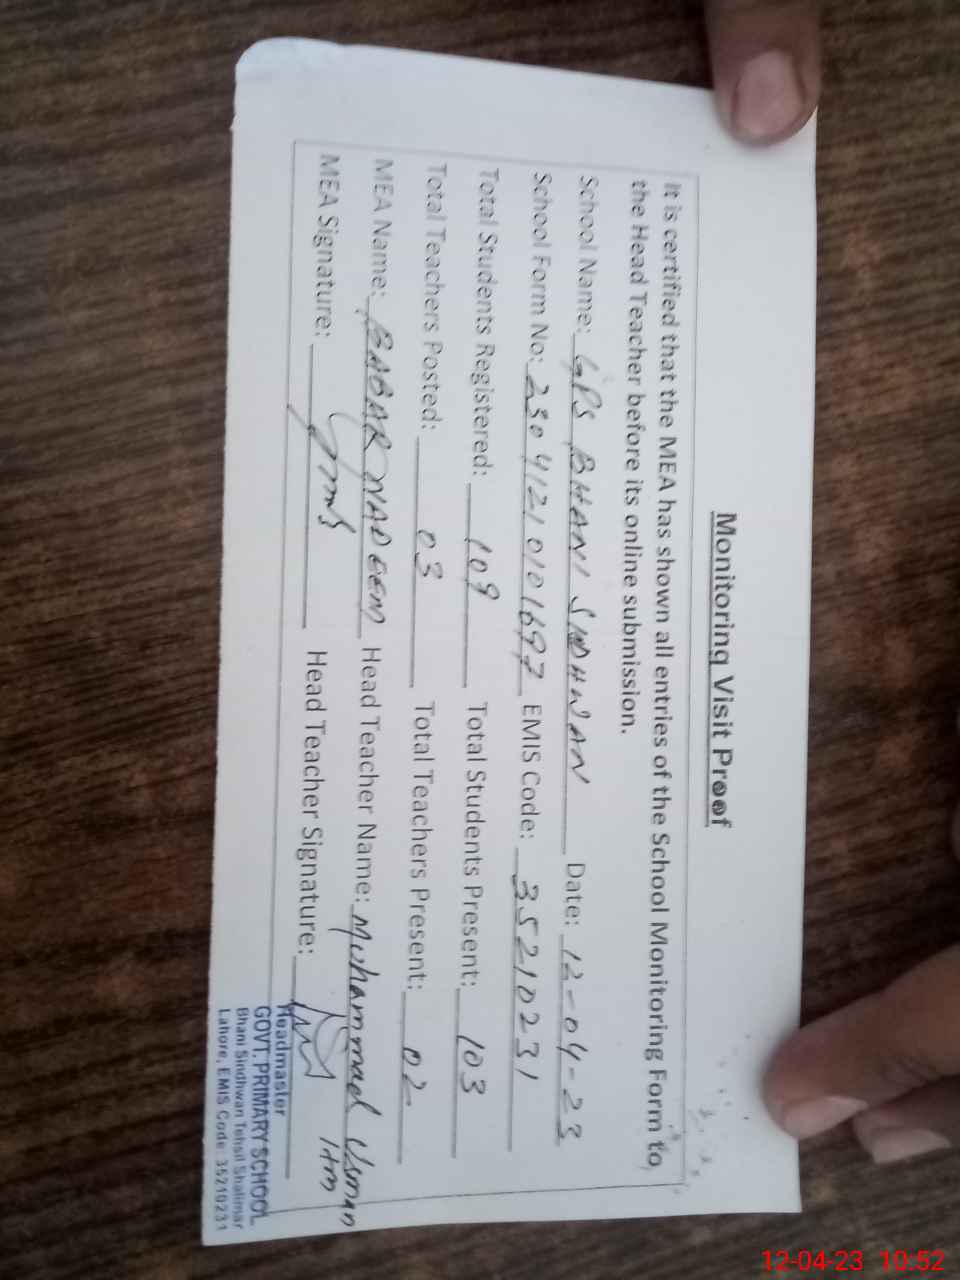 Monitoring Visit Proof
It is certified that the MEA has shown all entries of the School Monitoring Form to
the Head Teacher before its online submission.
School Name: GPS BHANI SINDHWAN Date: 12-04-23
School Form No: 23041210101697 EMIS Code: 35210231
Total Students Registered: 109 Total Students Present: 103
Total Teachers Posted: 03 Total Teachers Present: 02
MEA Name: BABAR NADEEM Head Teacher Name: Muhammad Usman
MEA Signature: Head Teacher Signature: HM
Headmaster
GOVT. PRIMARY SCHOOL
Bhani Sindhwan Tehsil Shalimar
Lahore, EMIS Code: 35210231
12-04-23 10:52